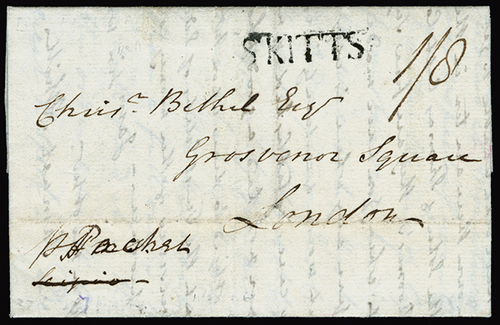 SKITTS
1/8
Chrisr. Bethel Esqr
Grosvenor Square
London
p Packet